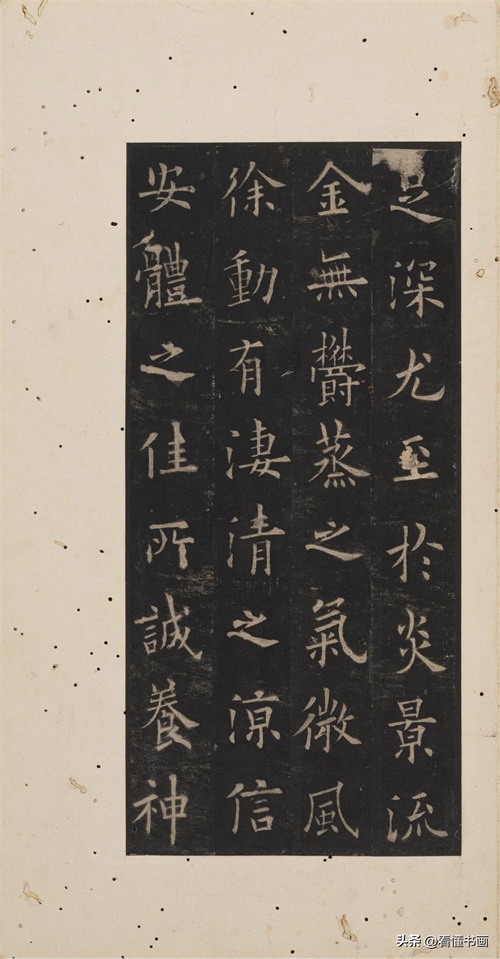 足深尤至於炎景流
金無欎蒸之氣微風
徐動有淒清之涼信
安體之佳所誠養神
头条 @看懂书画